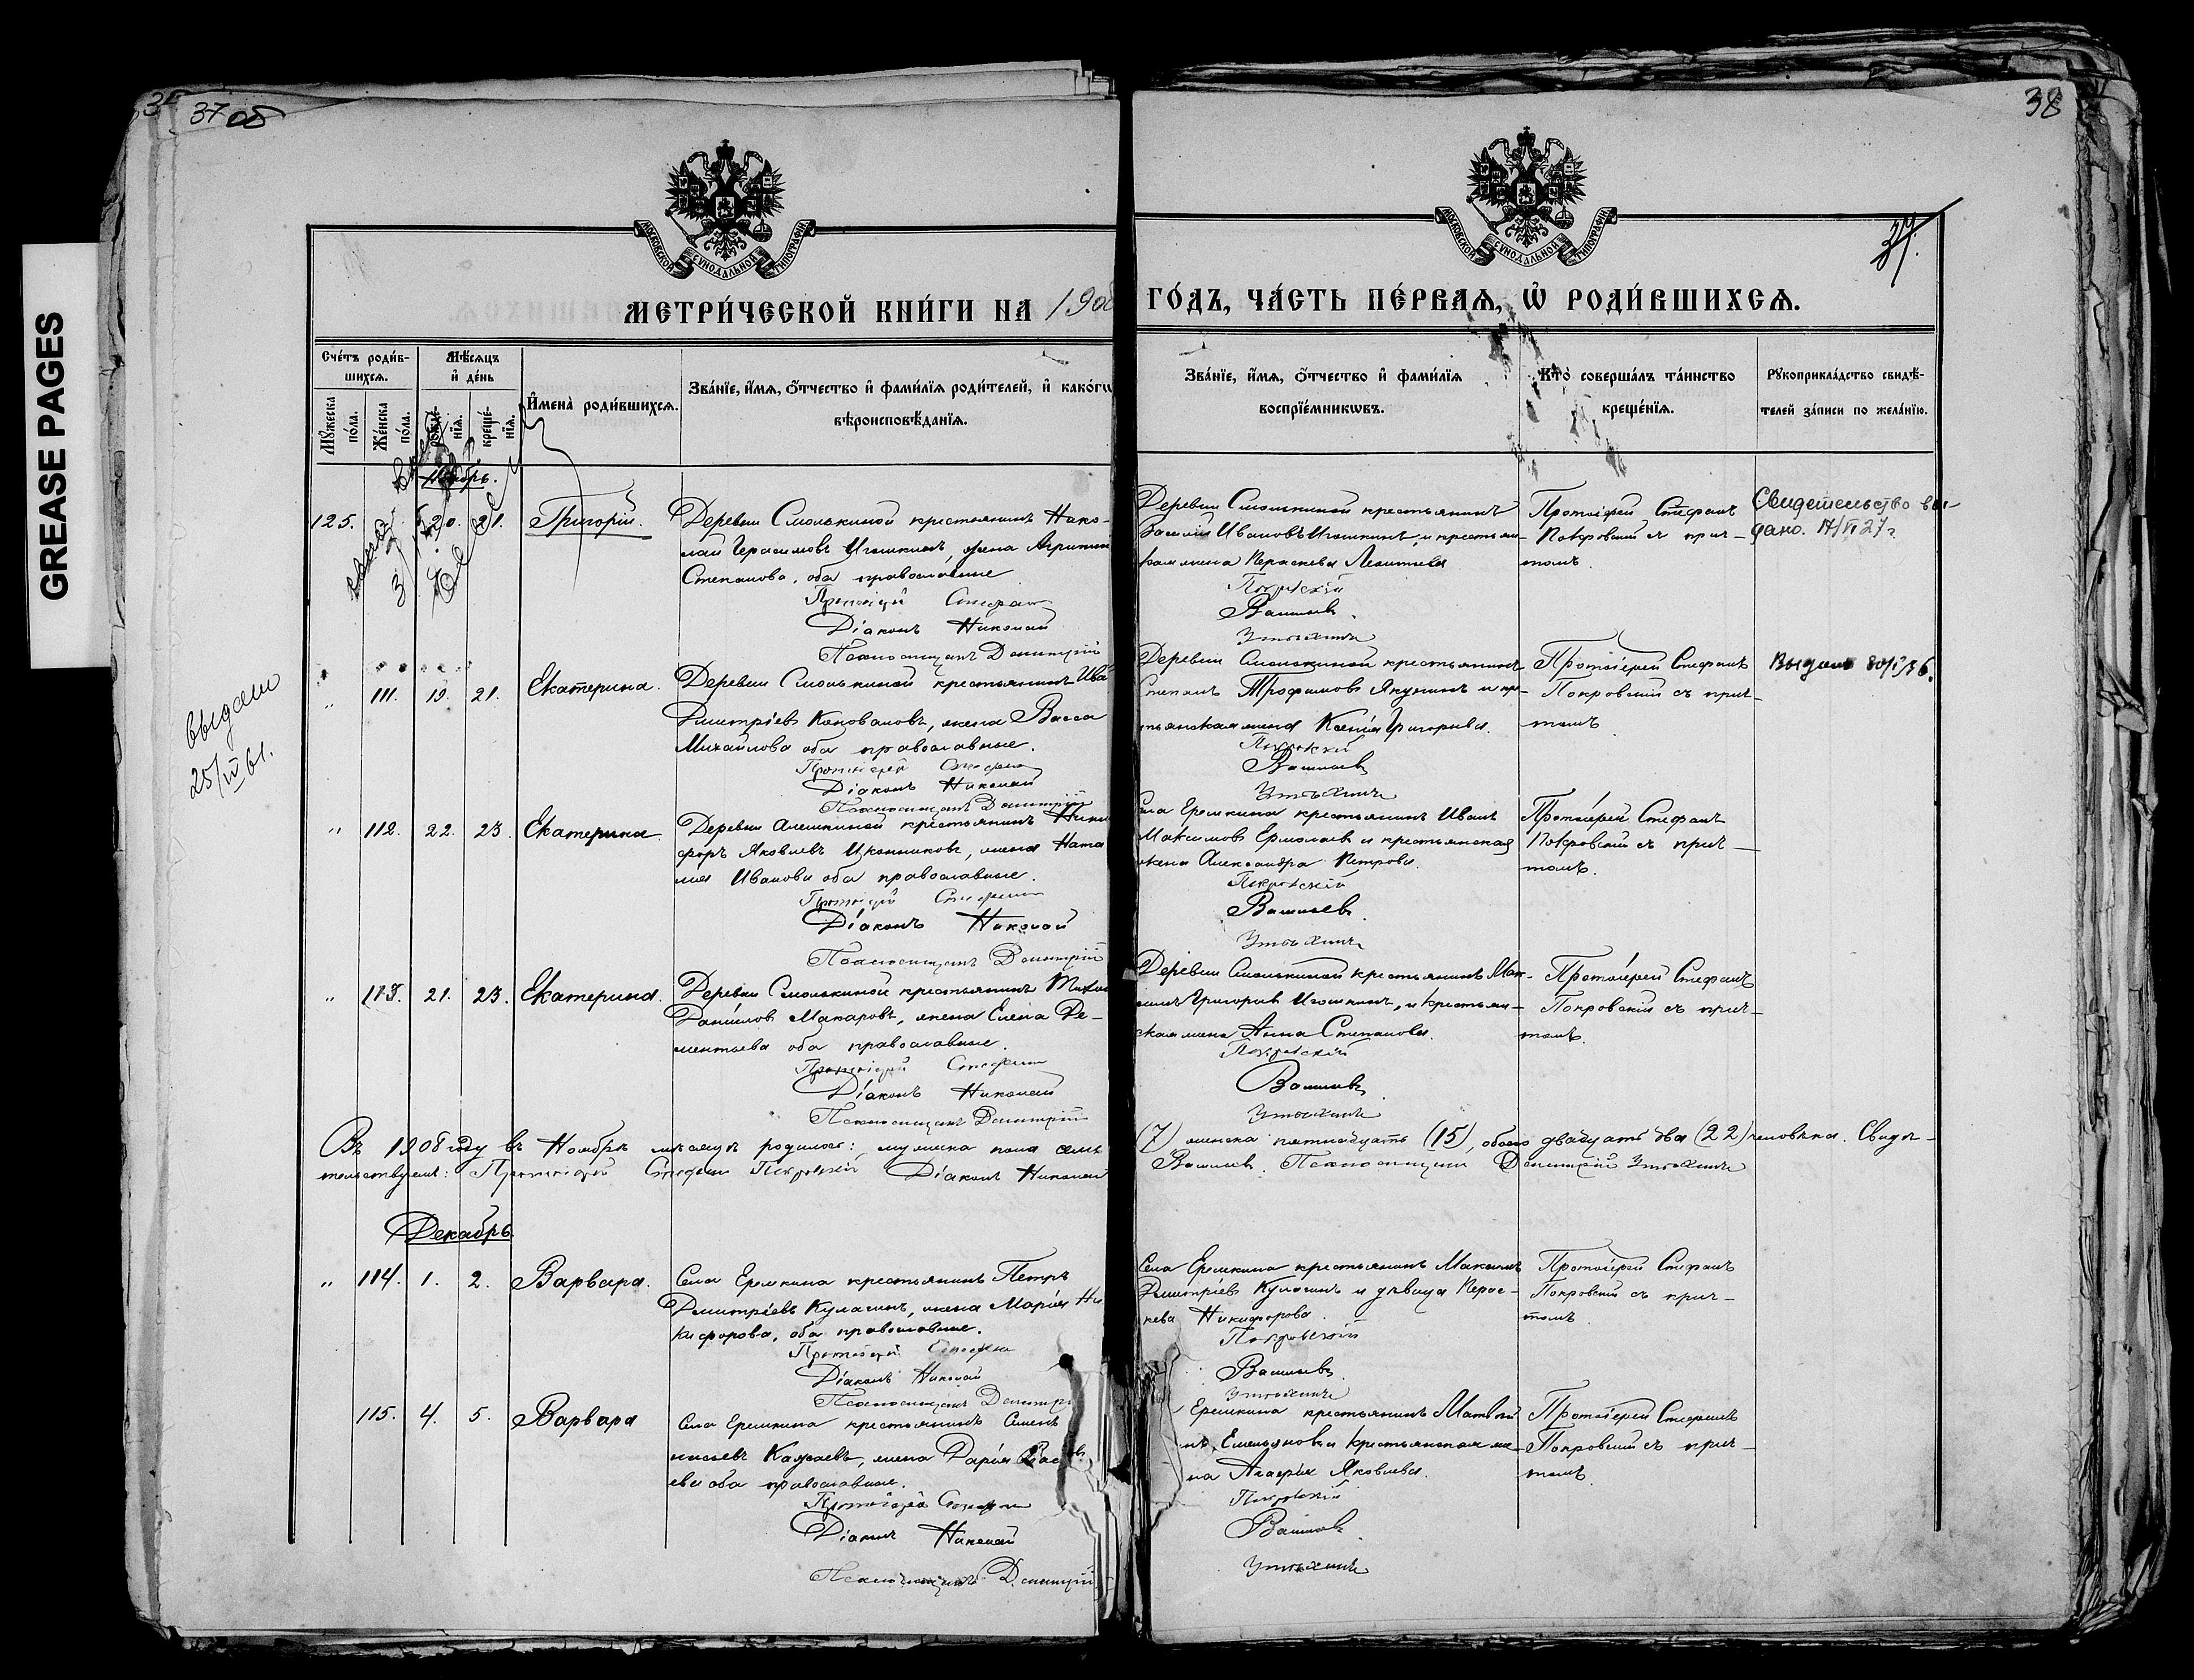 GREASE PAGES
37 об
38
37.
МОСКОВСКОЙ СѴНОДАЛЬНОЙ ТИПОГРАФІИ
МОСКОВСКОЙ СѴНОДАЛЬНОЙ ТИПОГРАФІИ
МЕТРИ́ЧЕСКОЙ КНИ́ГИ НА 1908
ГО́ДЪ, ЧА́СТЬ ПЕ́РВАѦ, Ѡ҆ РОДИ́ВШИХСѦ.
Сче́тъ роди́вшихсѧ.
Мꙋ́жеска по́ла.
Же́нска по́ла.
Мѣ́сѧцъ и҆ де́нь
рожде́нїѧ.
креще́нїѧ.
И҆мена̀ роди́вшихсѧ.
Зва́нїе, и҆́мѧ, ѻ҆́тчество и҆ фами́лїѧ роди́телей, и҆ како́гѡ
вѣроисповѣ́данїѧ.
Зва́нїе, и҆́мѧ, ѻ҆́тчество и҆ фами́лїѧ
воспрїе́мникѡвъ.
Кто̀ соверша́лъ та́инство
креще́нїѧ.
Рꙋкоприкла́дство свидѣ́-
телей за́писи по жела́нїю.
Ноябрь.
125. 20. 21. Григорій.
Деревни Смолькиной крестьянинъ Нико-
лай Герасимовъ Игошкинъ, жена Агрипина
Степанова, оба православные
Протоіерей Стефанъ
Діаконъ Николай
Псаломщикъ Димитрій
Деревни Смолькиной крестьянинъ
Василій Ивановъ Игошкинъ, и крестьян-
ская жена Параскева Леонтьева
Покровскій
Васильевъ
Утѣхинъ
Протоіерей Стефанъ
Покровскій съ прич-
томъ.
Свидетельство вы-
дано. 17/VI 27 г.
" 111. 19. 21. Екатерина.
Деревни Смолькиной крестьянинъ Ива
Дмитріевъ Коноваловъ, жена Васса
Михайлова оба православные.
Протоіерей Стефанъ
Діаконъ Николай
Псаломщикъ Димитрій
Деревни Смолькиной крестьянинъ
Степанъ Трофимовъ Якунинъ и кре-
тьянская жена Ксенія Григорьева.
Покровскій
Васильевъ
Утѣхинъ
Протоіерей Стефанъ
Покровскій съ прич-
томъ
Выдано 30/I 36.
выдано
25/IV 61.
" 112. 22. 23. Екатерина
Деревни Алешкиной крестьянинъ Ники
форъ Яковлевъ Иконниковъ, жена Ната
лія Иванова оба православные.
Протоіерей Стефанъ
Діаконъ Николай
Псаломщикъ Димитрій
Села Еремкина крестьянинъ Иванъ
Максимовъ Ермолаевъ и крестьянская
жена Александра Петрова.
Покровскій
Васильевъ
Утѣхинъ
Протоіерей Стефанъ
Покровскій съ прич-
томъ.
" 113. 21. 23. Екатерина.
Деревни Смолькиной крестьянинъ Михаи
Даніиловъ Макаровъ, жена Елена Де-
ментьева оба православные.
Протоіерей Стефанъ
Діаконъ Николай
Псаломщикъ Димитрій
Деревни Смолькиной крестьянинъ Мак-
симъ Григорьевъ Игошкинъ, и крестьян-
ская жена Анна Степанова.
Покровскій
Васильевъ
Утѣхинъ
Протоіерей Стефанъ
Покровскій съ прич-
томъ.
Въ 1908 году въ Ноябрѣ мѣсяцѣ родилось: мужеска пола семь (7) женска пятнадцать (15), обоего двадцать два (22) человѣка. Свидѣ-
тельствуемъ: Протоіерей Стефанъ Покровскій Діаконъ Николай Васильевъ. Псаломщикъ Димитрій Утѣхинъ
Декабрь
" 114. 1. 2. Варвара.
Села Еремкина крестьянинъ Петръ
Дмитріевъ Кулагинъ, жена Марія Ни
кифорова, оба православные.
Протоіерей Стефанъ
Діаконъ Николай
Псаломщикъ Димитрі
Села Еремкина крестьянинъ Максимъ
Дмитріевъ Кулагинъ и дѣвица Парас-
кева Никифорова.
Покровскій
Васильевъ
Утѣхинъ
Протоіерей Стефанъ
Покровскій съ прич-
томъ
115. 4. 5. Варвара
Села Еремкина крестьянинъ Семенъ
жена Дарія
ева оба православные.
Протоіерей Стефанъ
Діаконъ Николай
Псаломщикъ Димитрій
Еремкина крестьянинъ Матвѣй
Емельяновъ и крестьянская же-
на Агафія Яковлева.
Покровскій
Васильевъ
Утѣхинъ
Протоіерей Стефанъ
Покровскій съ прич-
томъ